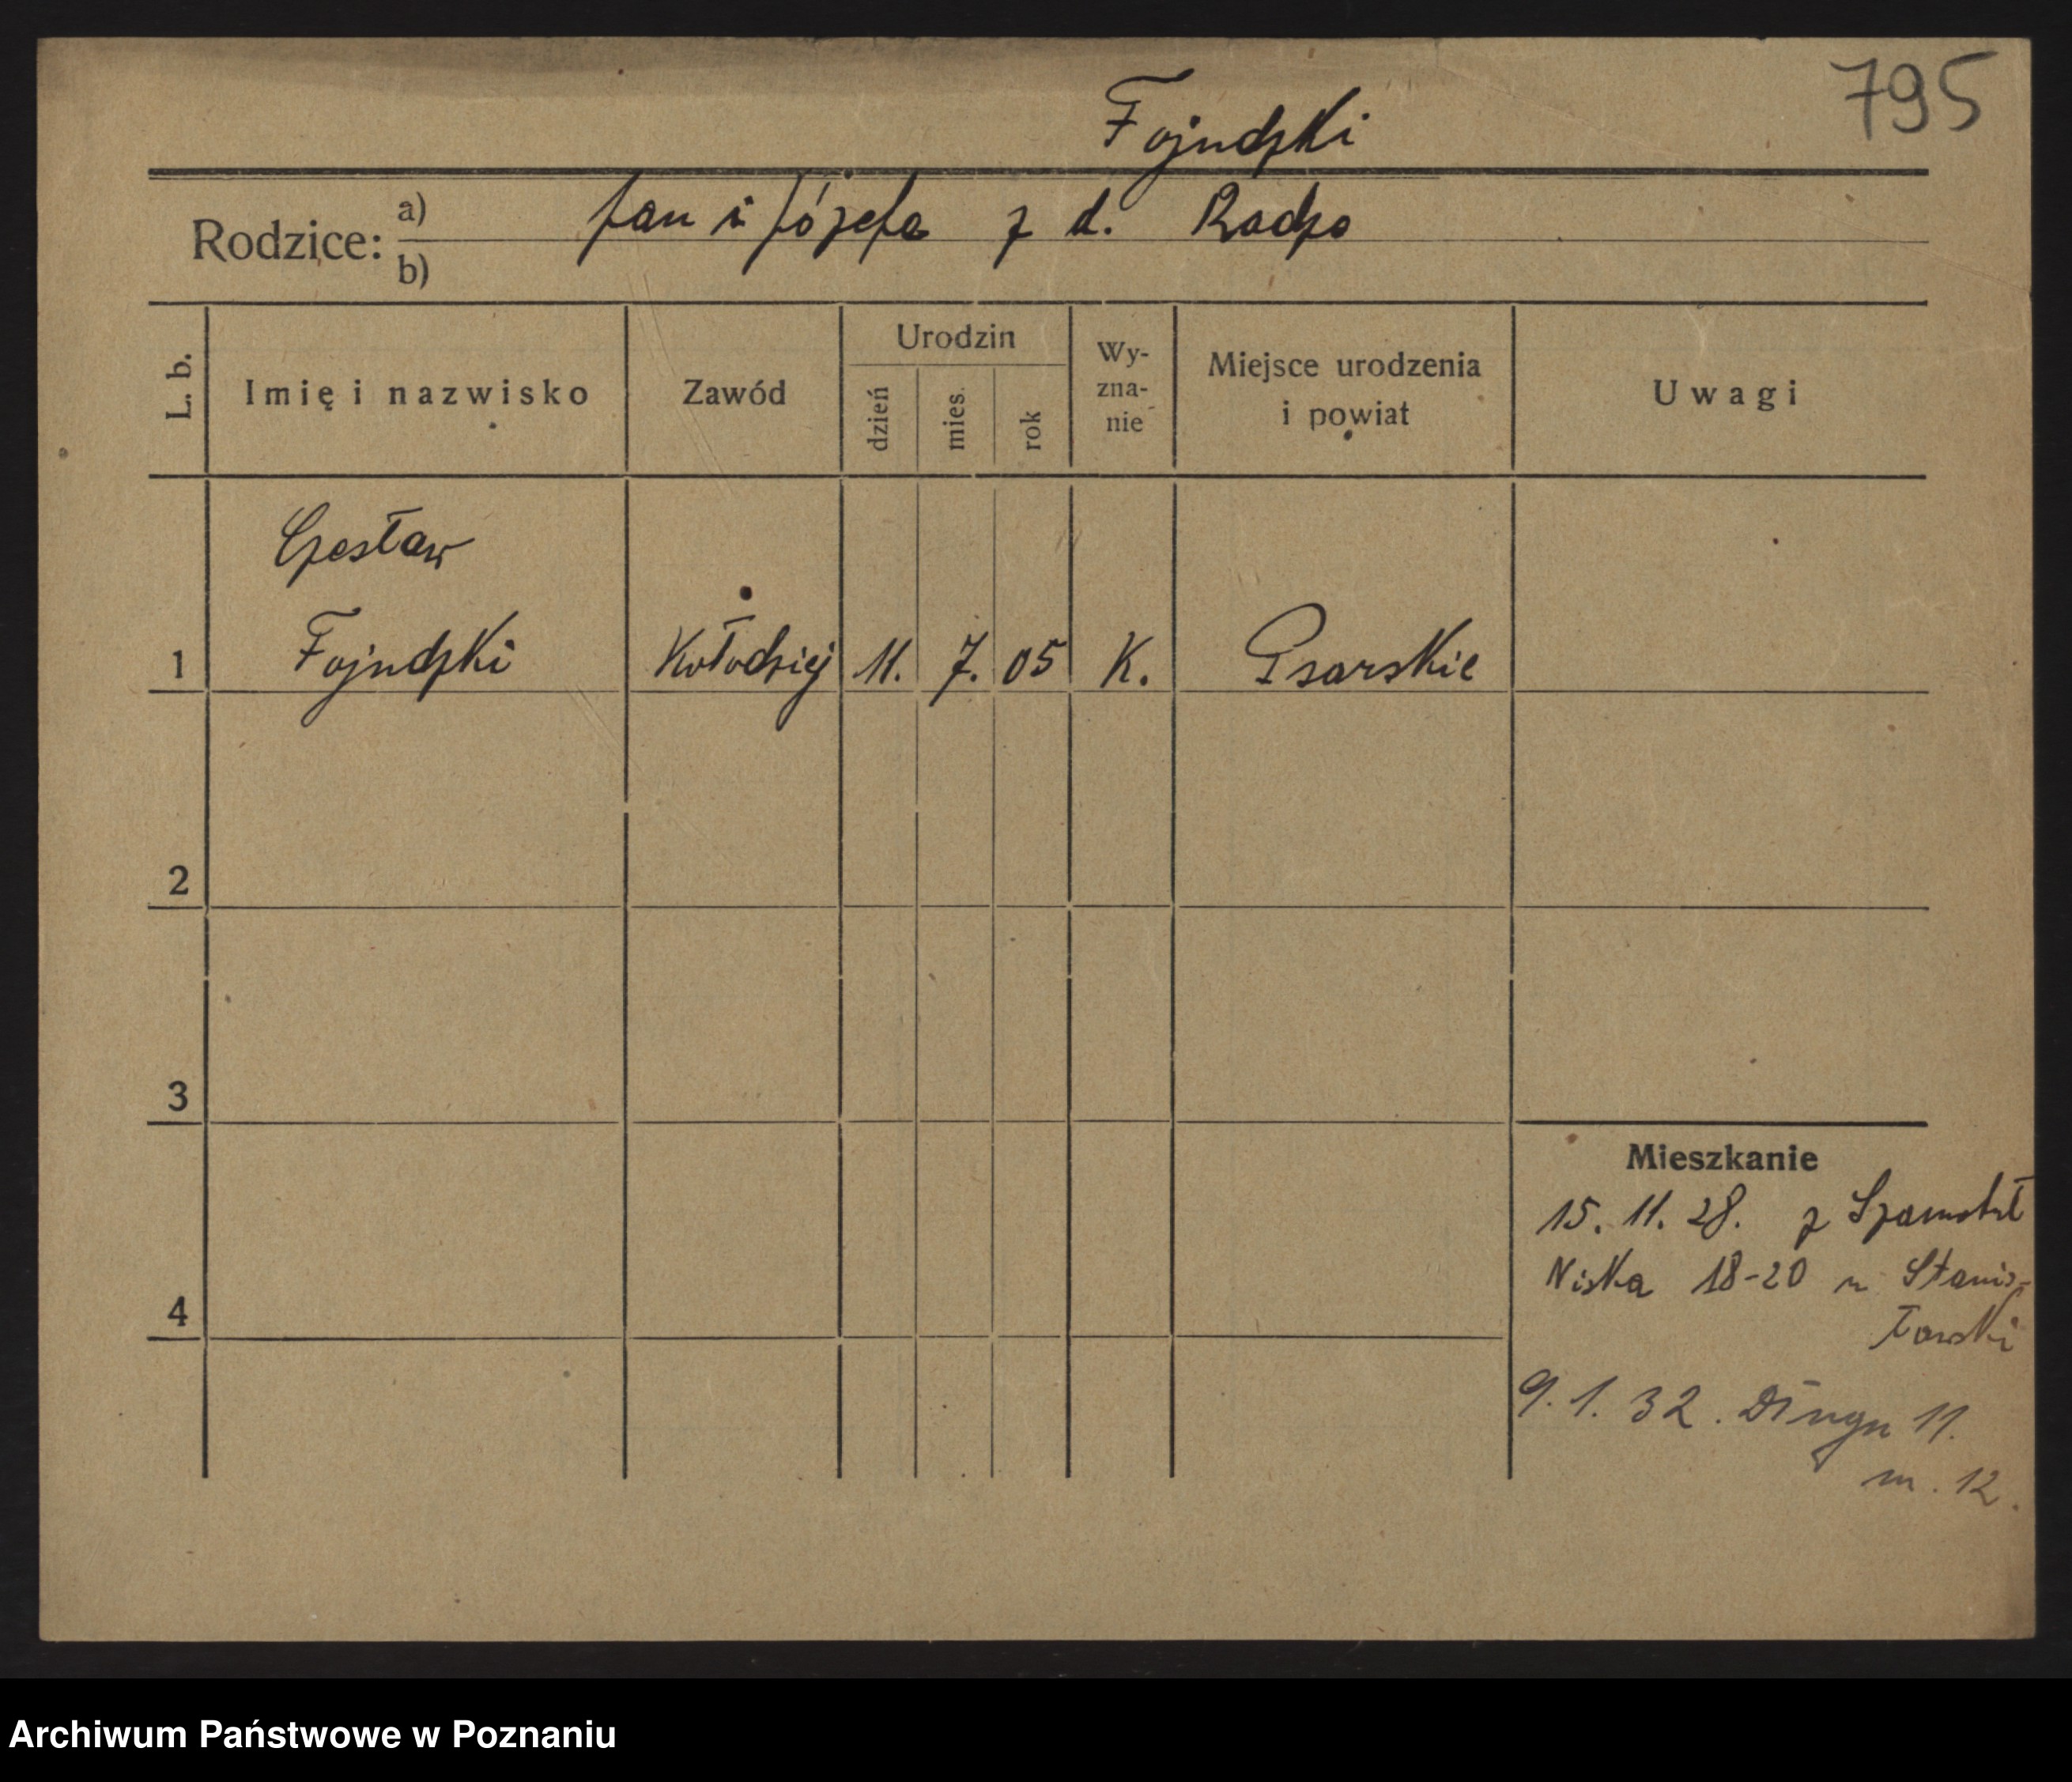 795
Fojudzki
Rodzice: a) Jan i Józefa z d. Radzo
b)
L. b. Imię i nazwisko Zawód Urodzin dzień mies. rok Wy-zna-nie Miejsce urodzenia i powiat Uwagi
Czesław
1 Fojudzki Kołodziej 11. 7. 05 K. Psarskie
2
3
Mieszkanie
15. 11. 28. z Szamotuł
Niska 18-20 u Stanis-
4
ławski
9. 1. 32. Długa 11.
m. 12.
Archiwum Państwowe w Poznaniu